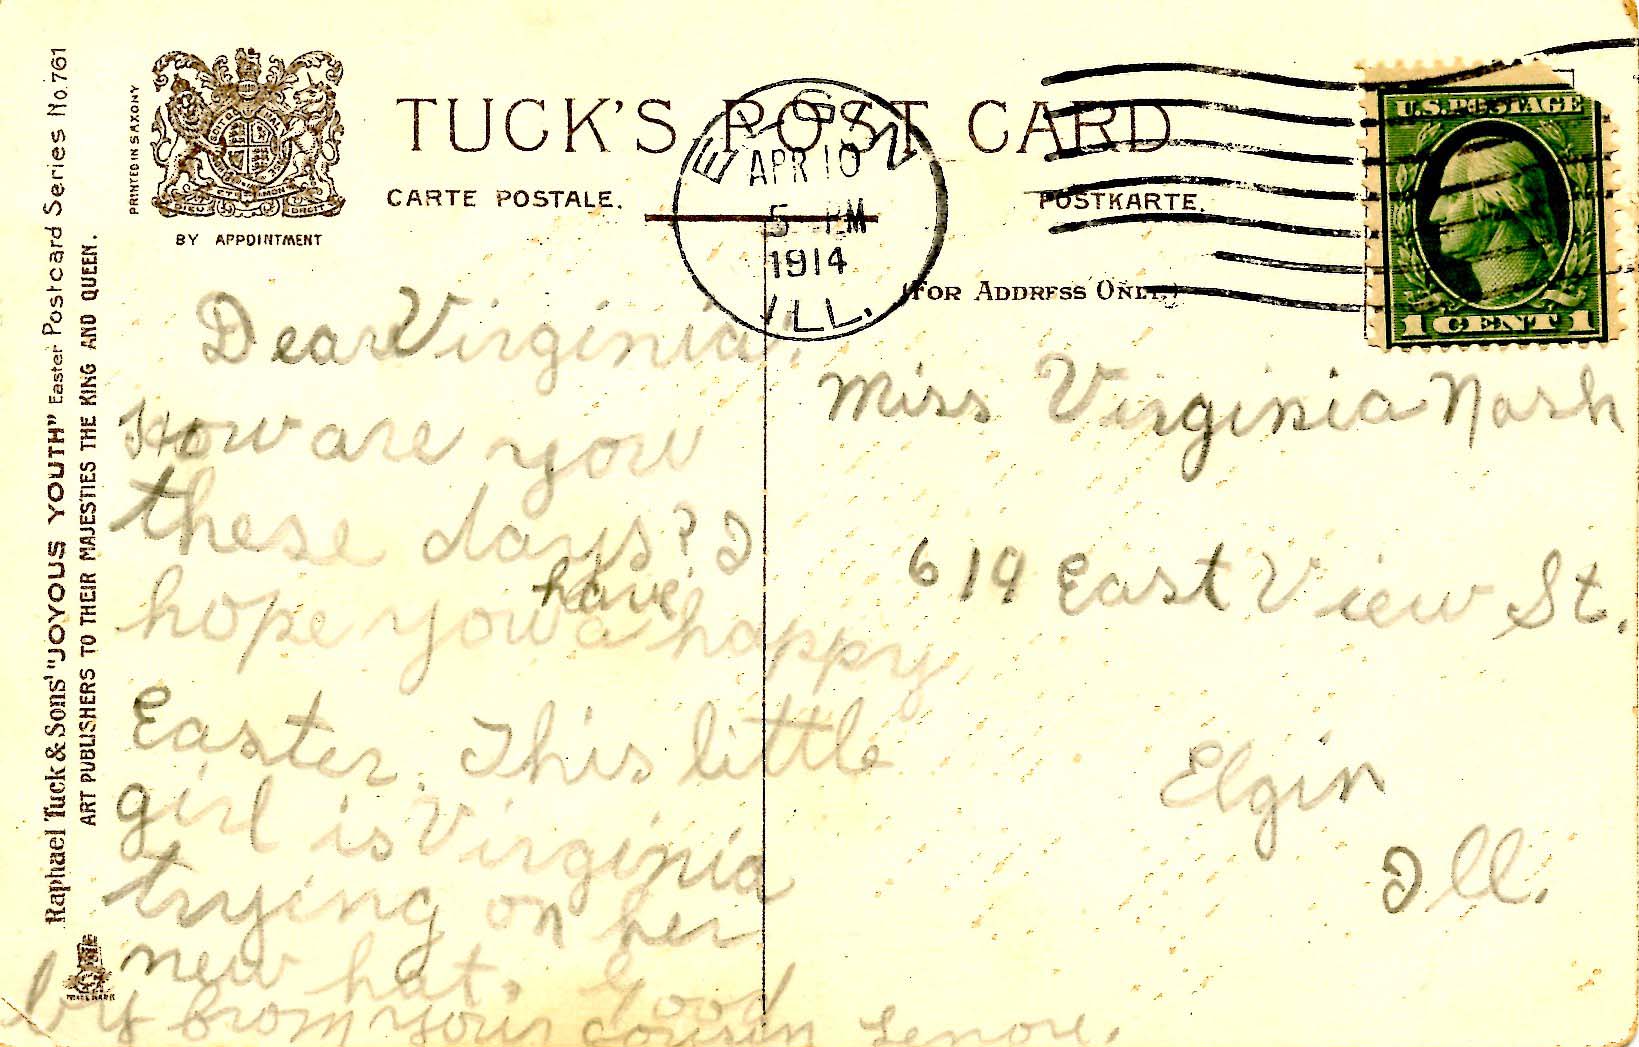 Raphael Tuck & Sons' "JOYOUS YOUTH" Easter Postcard Series No. 761
ART PUBLISHERS TO THEIR MAJESTIES THE KING AND QUEEN.
PRINTED IN SAXONY
DIEU ET MON DROIT
BY APPOINTMENT
TRADE MARK
TUCK'S POST CARD
CARTE POSTALE.
POSTKARTE.
(FOR ADDRESS ONLY.)
ELGIN
APR 10
5 PM
1914
ILL.
U.S. POSTAGE
1 CENT 1
Dear Virginia,
How are you
these days? I
hope you have a happy
Easter. This little
girl is Virginia
trying on her
new hat. Good
by from your cousin Lenore.
Miss Virginia Nash
619 East View St.
Elgin
Ill.